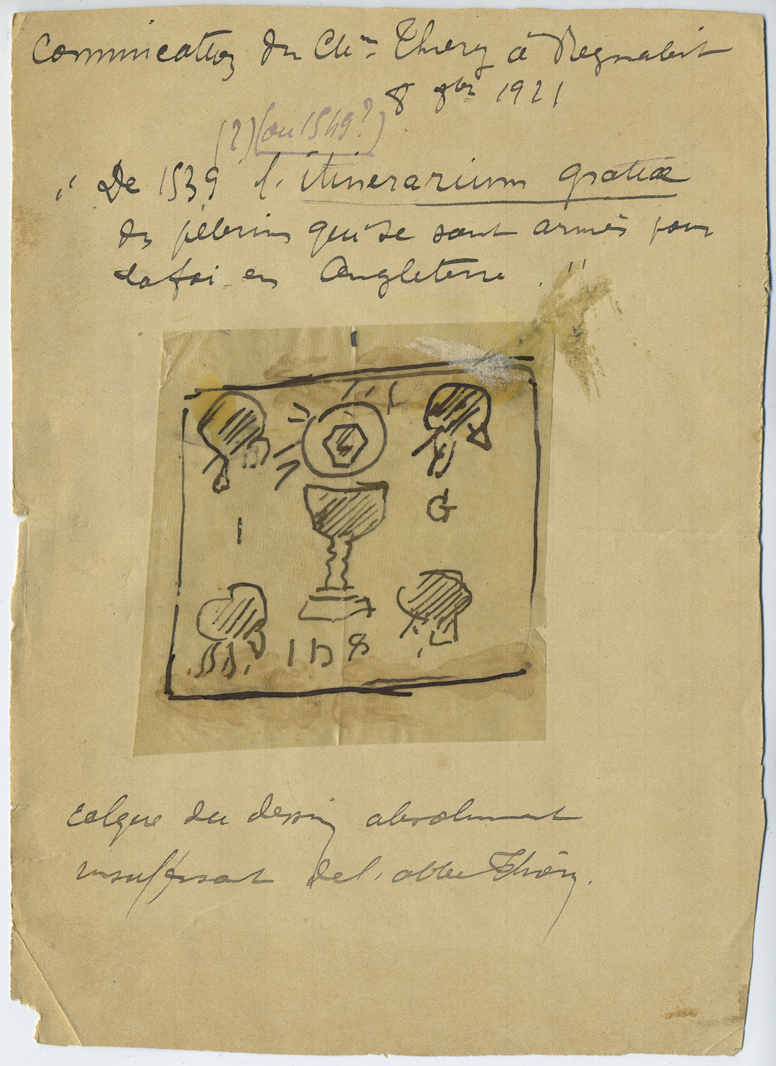 Communication du Chne Thiery à Regnabit
8 9bre 1921
(?) (ou 1549?)
" De 1539 l'itinerarium gratiae
des pèlerins qui se sont armés pour
la foi en Angleterre . "
I G
IHS
calque du dessin absolument
insuffisant de l'abbé Thiéry.